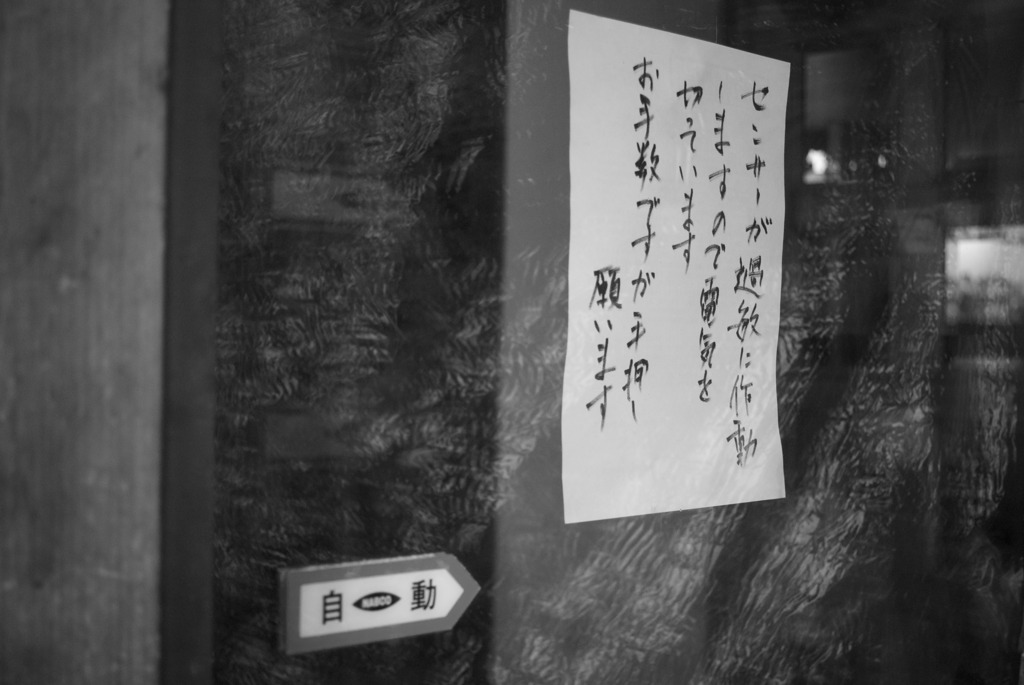 センサーが過敏に作動
しますので電気を
切っています
お手数ですが手押し
願います
自 NABCO 動